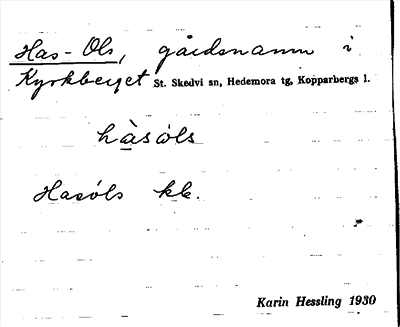 Has-Ols, gårdsnamn i
Kyrkberget St. Skedvi sn, Hedemora tg, Kopparbergs l.
hàsóls
Hasóls kk.
Karin Hessling 1930